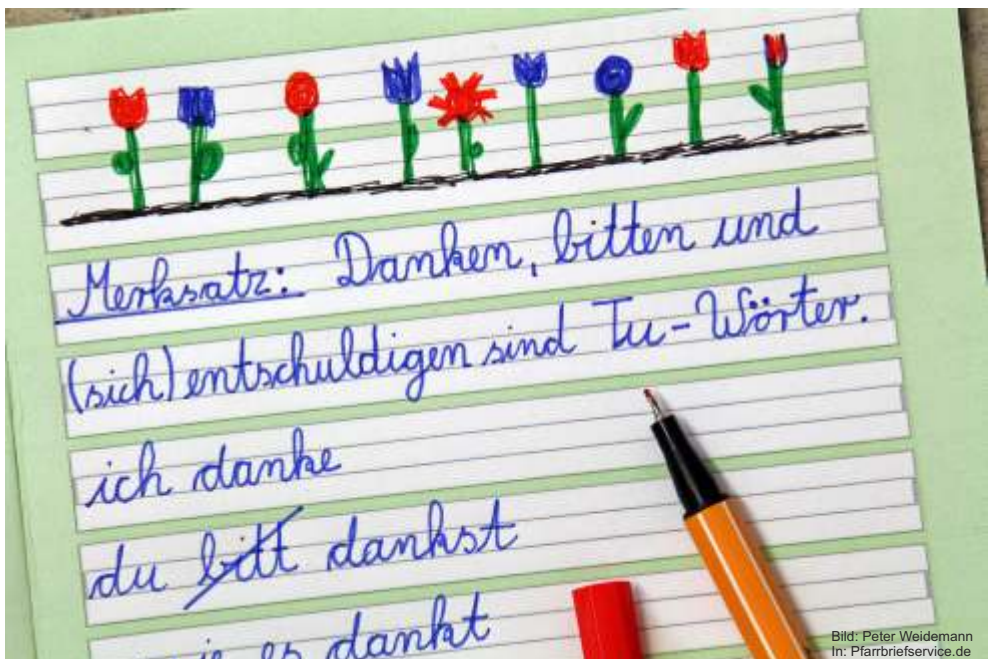 Merksatz: Danken, bitten und
(sich) entschuldigen sind Tu-Wörter.
ich danke
du bitt dankst
es dankt
Bild: Peter Weidemann
In: Pfarrbriefservice.de